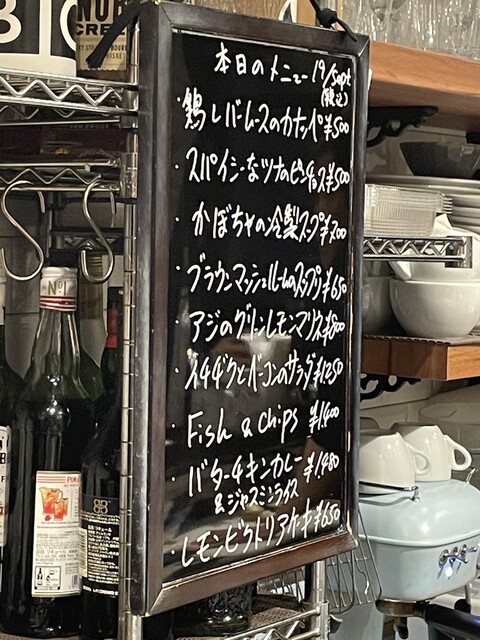 NUB
CREEK
本日のメニュー 19/Sept
(税込)
・鶏レバームースのカナッペ ¥500
・スパイシーなツナのピンチョス ¥500
・かぼちゃの冷製スープ ¥700
・ブラウンマッシュルームのスップリ ¥650
・アジのグリーンレモンマリネ ¥800
・イチヂクとベーコンのサラダ ¥1250
・Fish & Chips ¥1400
・バターチキンカレー ¥1480
&ジャスミンライス
・レモンビクトリアケーキ ¥650
Nº1